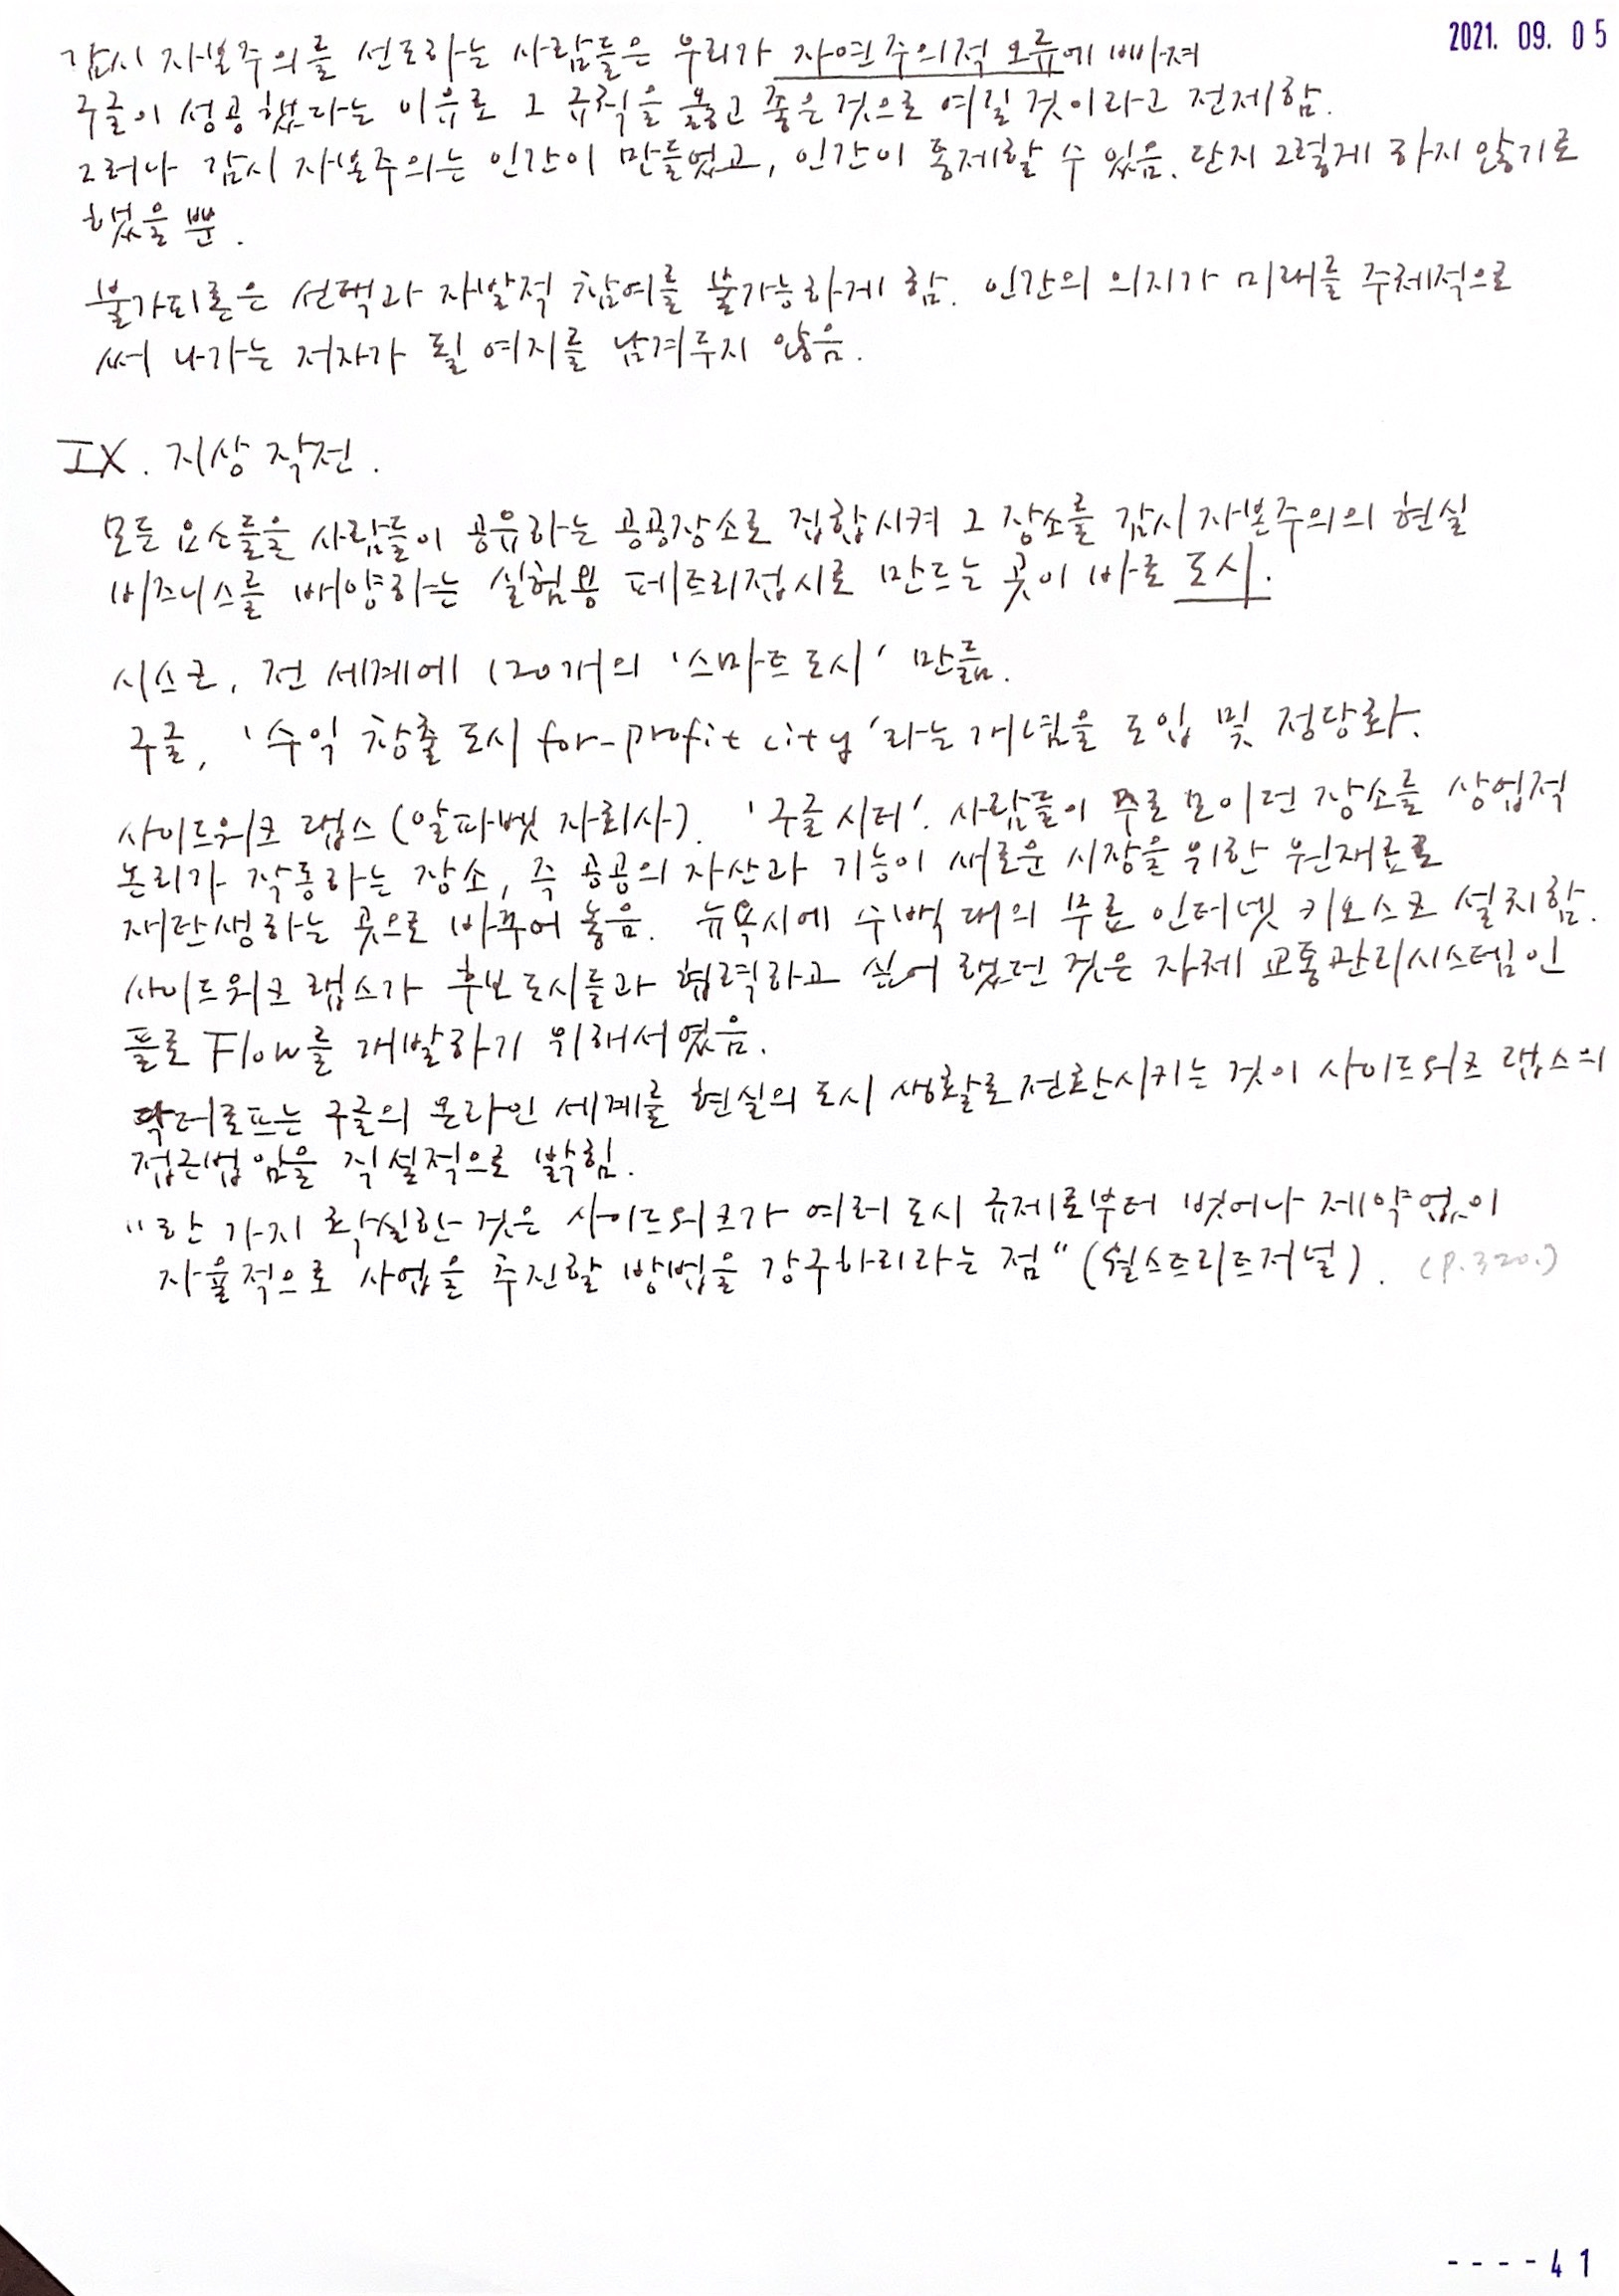 2021. 09. 05
감시 자본주의를 선도하는 사람들은 우리가 자연주의적 오류에 빠져
구글이 성공했다는 이유로 그 규칙을 옳고 좋은 것으로 여길 것이라고 전제함.
그러나 감시 자본주의는 인간이 만들었고, 인간이 통제할 수 있음. 단지 그렇게 하지 않기로
했을 뿐.
불가피론은 선택과 자발적 참여를 불가능하게 함. 인간의 의지가 미래를 주체적으로
써 나가는 저자가 될 여지를 남겨두지 않음.
IX. 지상 작전.
모든 요소들을 사람들이 공유하는 공공장소로 집합시켜 그 장소를 감시 자본주의의 현실
비즈니스를 배양하는 실험용 페트리접시로 만드는 곳이 바로 도시.
시스코, 전 세계에 120개의 '스마트 도시' 만듦.
구글, '수익 창출 도시 for-profit city'라는 개념을 도입 및 정당화.
사이드워크 랩스(알파벳 자회사). '구글 시티'. 사람들이 주로 모이던 장소를 상업적
논리가 작동하는 장소, 즉 공공의 자산과 기능이 새로운 시장을 위한 원재료로
재탄생하는 곳으로 바꾸어 놓음. 뉴욕시에 수백 대의 무료 인터넷 키오스크 설치함.
사이드워크 랩스가 후보 도시들과 협력하고 싶어 했던 것은 자체 교통관리시스템인
플로 Flow를 개발하기 위해서였음.
닥터로프는 구글의 온라인 세계를 현실의 도시 생활로 전환시키는 것이 사이드워크 랩스의
접근법임을 직설적으로 밝힘.
"한 가지 확실한 것은 사이드워크가 여러 도시 규제로부터 벗어나 제약 없이
자율적으로 사업을 추진할 방법을 강구하리라는 점" (월스트리트저널). (p.320.)
----41